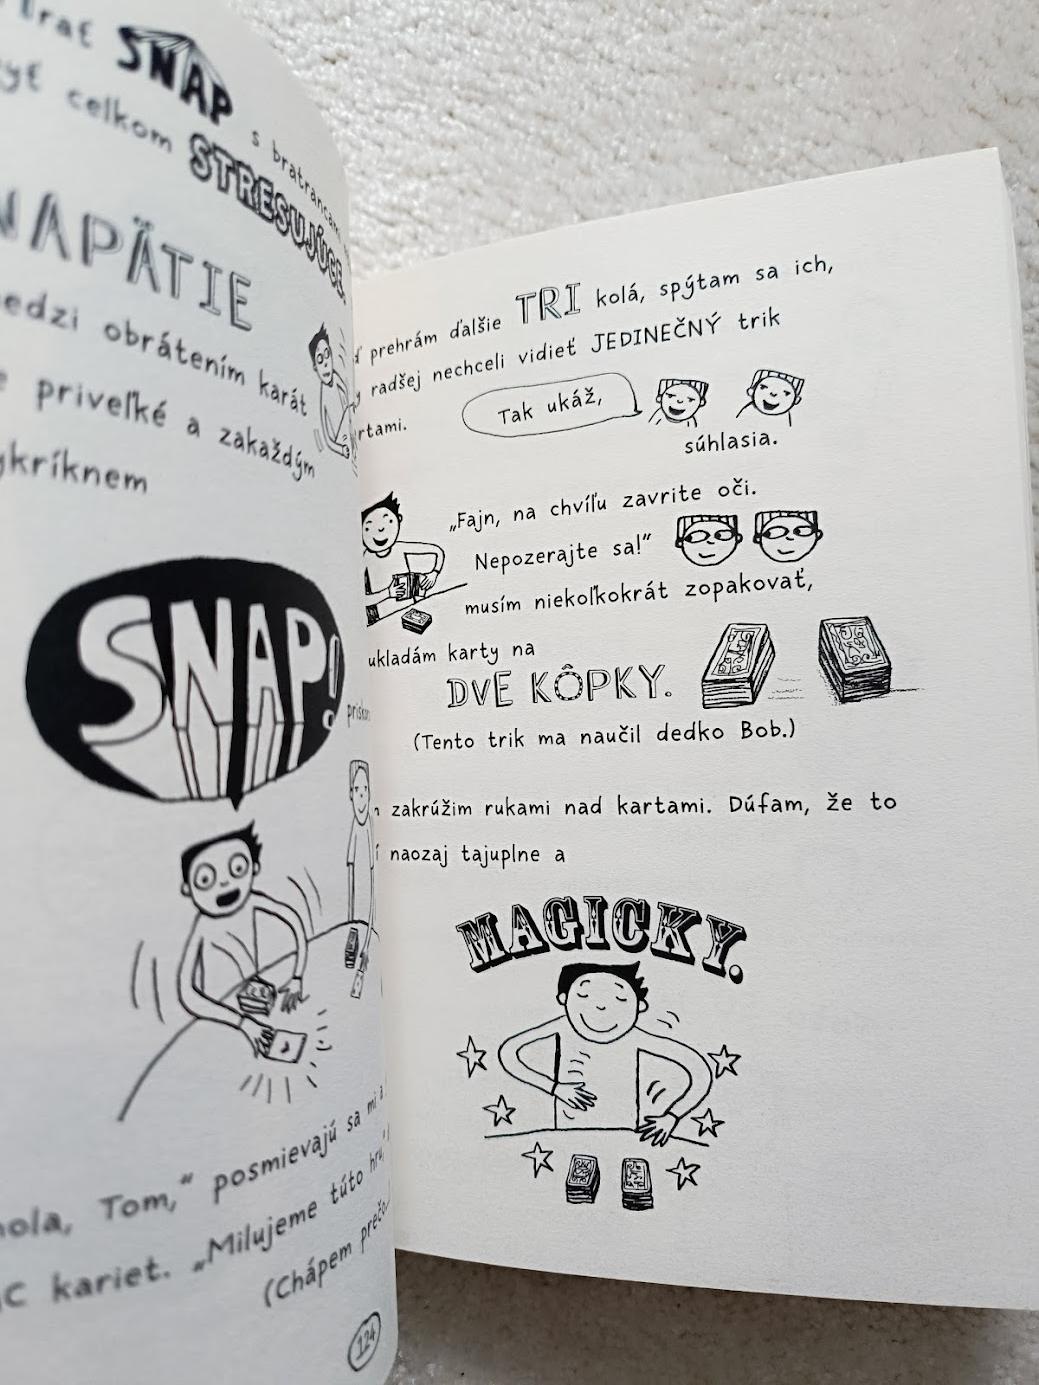 SNAP
s bratrancami
celkom STRESUJÚCE.
NAPÄTIE
medzi obrátením karát
priveľké a zakaždým
vykríknem
SNAP!
Tom,“ posmievajú sa mi a
kariet. „Milujeme túto hru,“
(Chápem prečo
124
prehrám ďalšie TRI kolá, spýtam sa ich,
radšej nechceli vidieť JEDINEČNÝ trik
Tak ukáž,
súhlasia.
„Fajn, na chvíľu zavrite oči.
Nepozerajte sa!“
musím niekoľkokrát zopakovať,
ukladám karty na
DVE KÔPKY.
(Tento trik ma naučil dedko Bob.)
zakrúžim rukami nad kartami. Dúfam, že to
naozaj tajuplne a
MAGICKY.